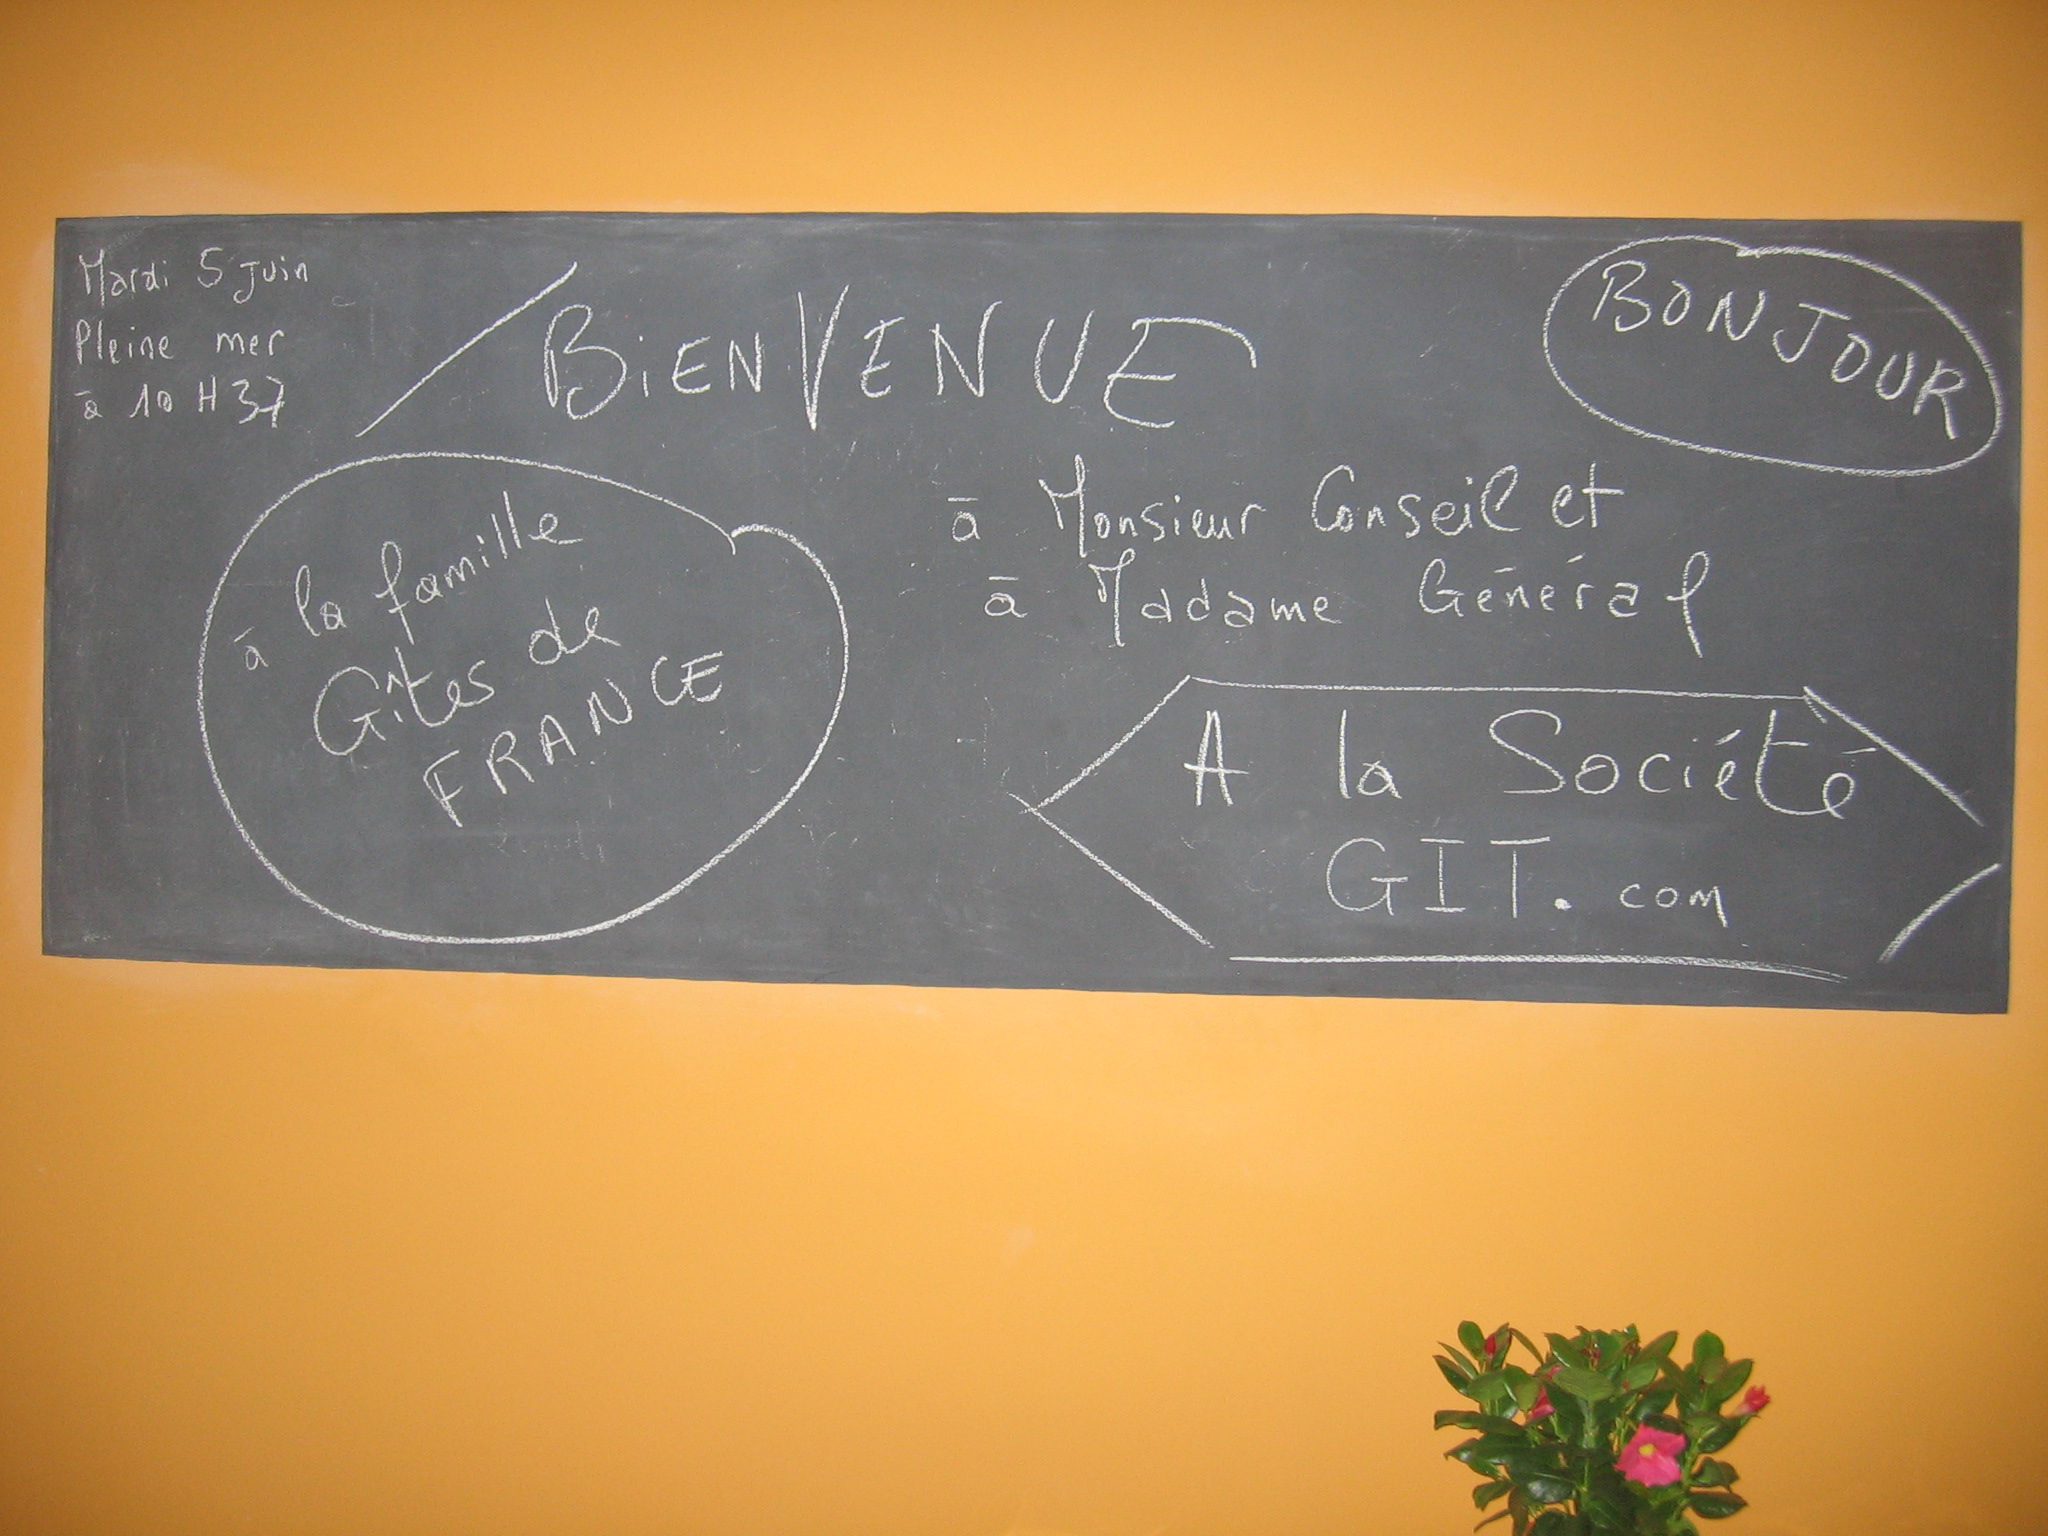 Mardi 5 Juin
Pleine mer
à 10 H 37
BiENVENUE
BONJOUR
à la famille
Gîtes de
FRANCE
à Monsieur Conseil et
à Madame Général
A la Société
GIT.com